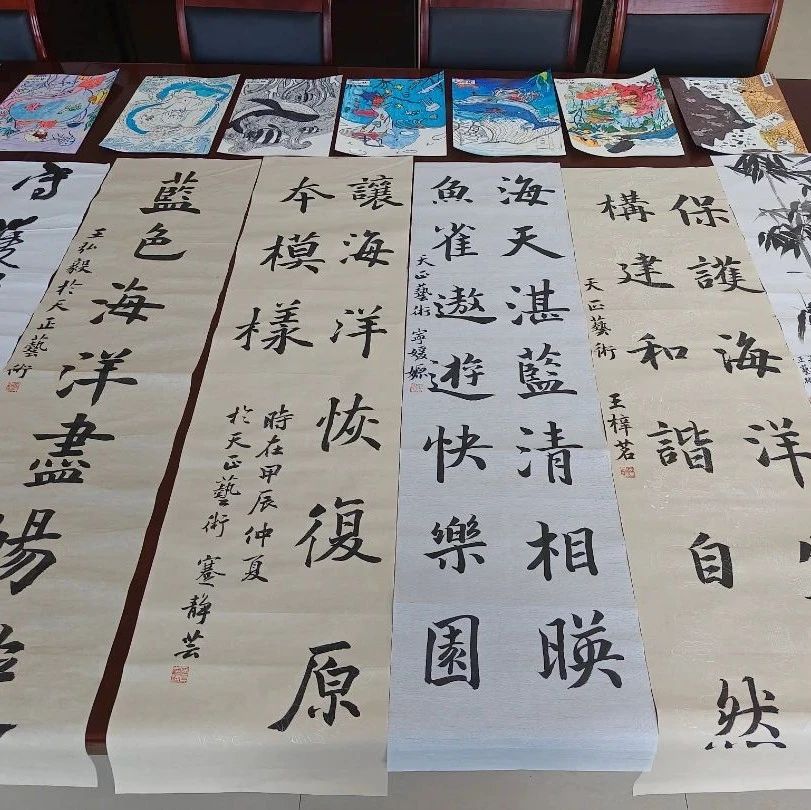 藍色海洋盡
王弘毅於天正藝術
讓海洋恢復原
本模樣
時在甲辰仲夏
於天正藝術 蹇靜芸
海天湛藍清相暎
魚雀遨遊快樂園
天正藝術 寧媛嫄
保護海洋
構建和諧自然
天正藝術 王梓茗